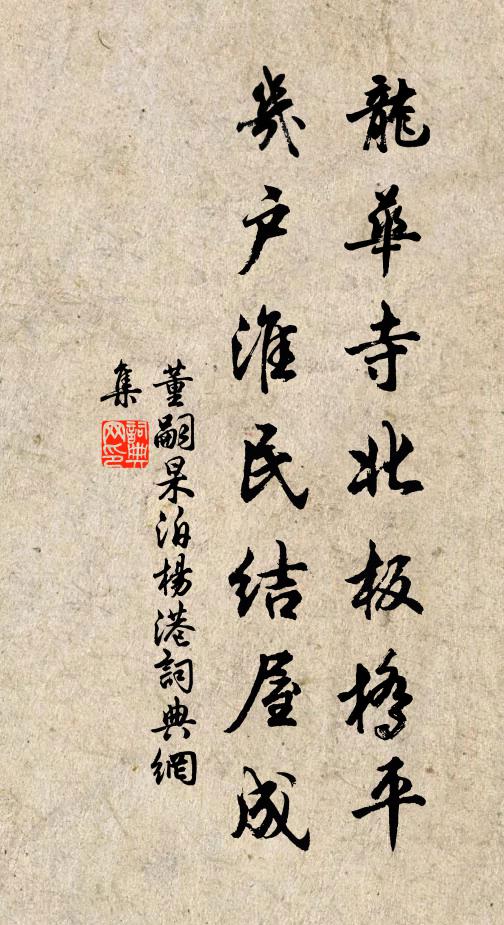 龍華寺北板橋平
幾户淮民結屋成
董嗣杲泊楊港詞典網
集
詞典
网印